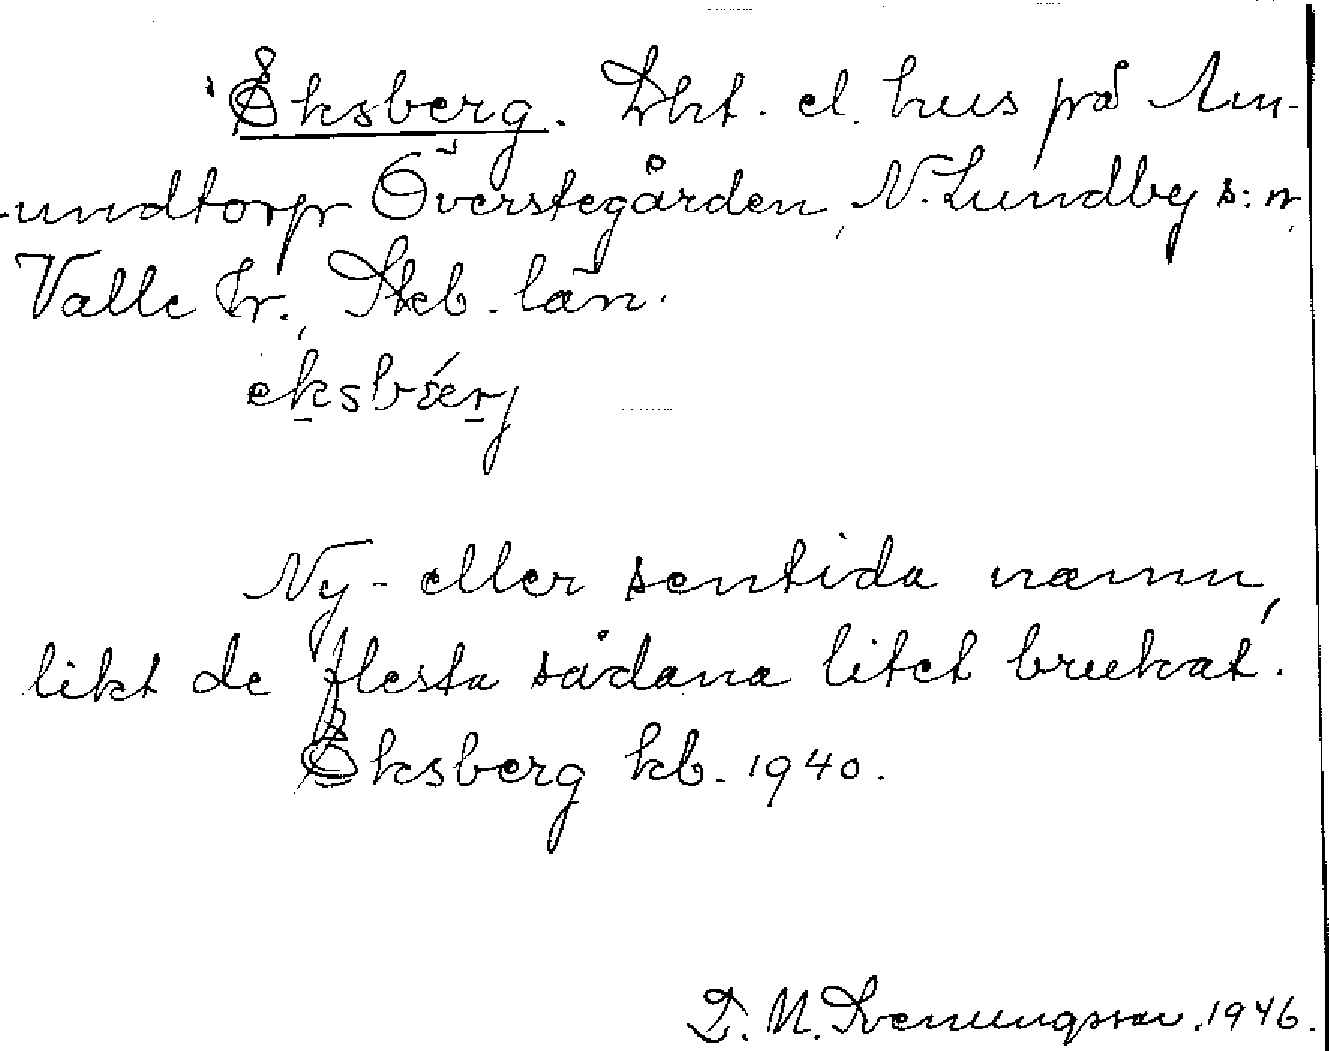 Eksberg. Lht. el. hus på Am-
undtorp Överstegården, N. Lundby s:n,
Valle hr., Skb. län.
eksbærj
Ny- eller sentida namn,
likt de flesta sådana litet brukat.
Eksberg kb. 1940.
D. M. Svenungsson. 1946.